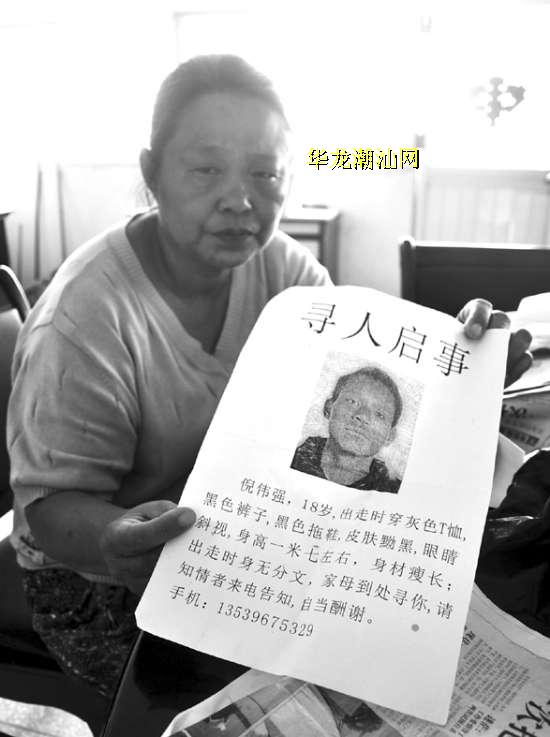 华龙潮汕网
寻人启事
倪伟强，18岁,出走时穿灰色T恤,
黑色裤子,黑色拖鞋,皮肤黝黑,眼睛
斜视,身高一米七左右，身材瘦长；
出走时身无分文，家母到处寻你,请
知情者来电告知,自当酬谢。
手机：13539675329